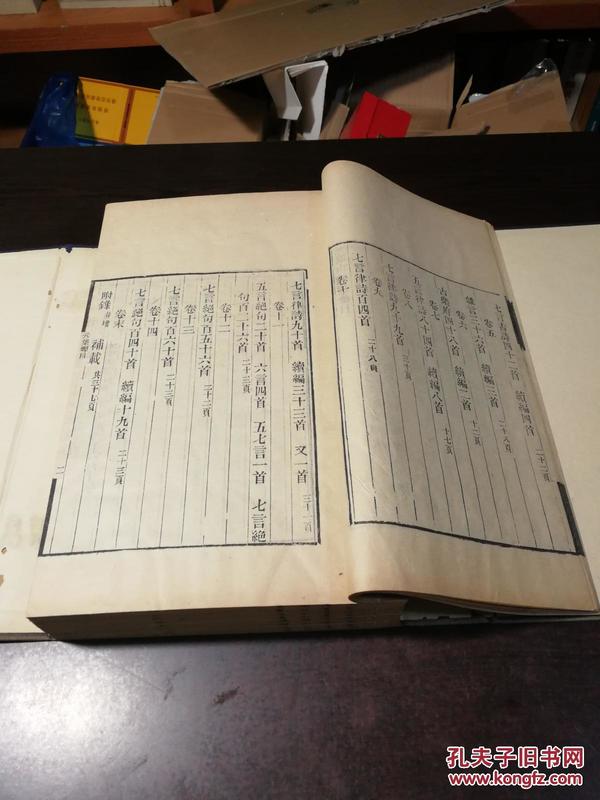 七言古詩五十二首 續編四首 二十二頁
卷五
雜言二十六首 續編三首 二十八頁
卷六
古樂府四十八首 續編三首 十二頁
卷七
五言律詩六十四首 續編八首 十七頁
卷八
七言律詩九十九首 三十頁
卷九
七言律詩百四首 二十八頁
卷十
七言律詩九十首 續編三十三首 又一首 三十一頁
卷十一
五言絕句二十首 六言四首 五七言一首 七言絕
句百二十六首 二十三頁
卷十二
七言絕句百五十六首 二十二頁
卷十三
七言絕句百六十首 二十三頁
卷十四
七言絕句百四十首 續編十九首 二十三頁
卷末
附錄 補載 共三十七頁
孔夫子旧书网
www.kongfz.com